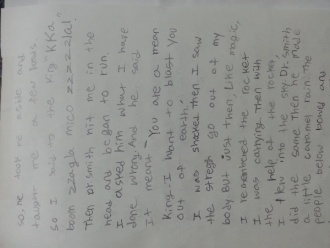 so, he took me aside and
taught me a few news
so I said to me King KKa
boom zzagla mico zzzzzlal!
Then Dr smith hit me in the
head and began to run.
I asked him what I have
done wrong. And he said
It meant "You are a mean
King-I want to blast you
out of earth."
I was shocked then I saw
the stregh go out of my
body. But just then, Like magic,
I remembered the rocket
I was carrying. Then with
the help of the rocket
I flew into the sky. Dr. smith
did the same. Then he made
a little rain. The
people bellow bowed and